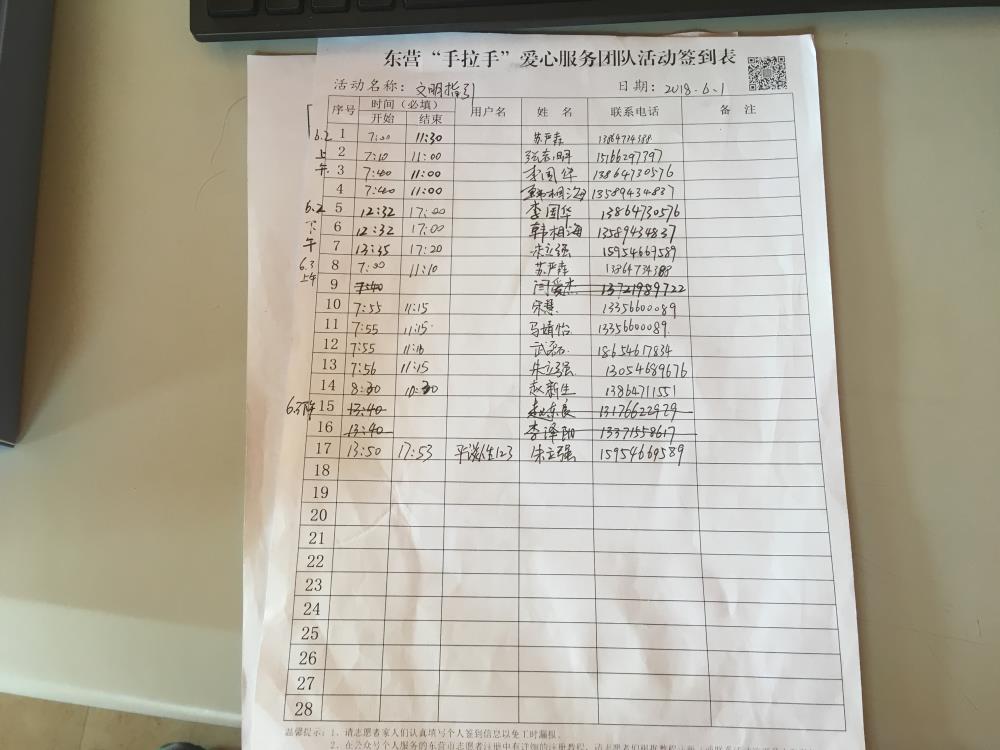 东营“手拉手”爱心服务团队活动签到表
活动名称：文明指引 日期：2018.6.1
序号 时间（必填） 用户名 姓 名 联系电话 备 注
开始 结束
6.2 1 7:00 11:30 苏严森 13864734388
上 2 7:10 11:00 张志明 15166297397
午 3 7:40 11:00 李国华 13864730576
4 7:40 11:00 韩相海 13589434837
6.2 5 12:32 17:00 李国华 13864730576
下 6 12:32 17:00 韩相海 13589434837
午 7 13:35 17:20 朱立强 15954669589
6.3 8 7:00 11:10 苏严森 13864734388
上午 9 7:40 闫爱杰 13721989722
10 7:55 11:15 宋慧 13356600089
11 7:55 11:15 马婧怡 13356600089
12 7:55 11:16 武磊 18654617834
13 7:56 11:15 朱立强 13054689676
14 8:30 赵新生 13864711551
6.3下午 15 13:40 13176622979
16 13:40 李泽阳 13371558617
17 13:50 17:53 朱立强 15954669589
18
19
20
21
22
23
24
25
26
27
28
温馨提示：1、请志愿者家人们认真填写个人签到信息以免工时漏报。